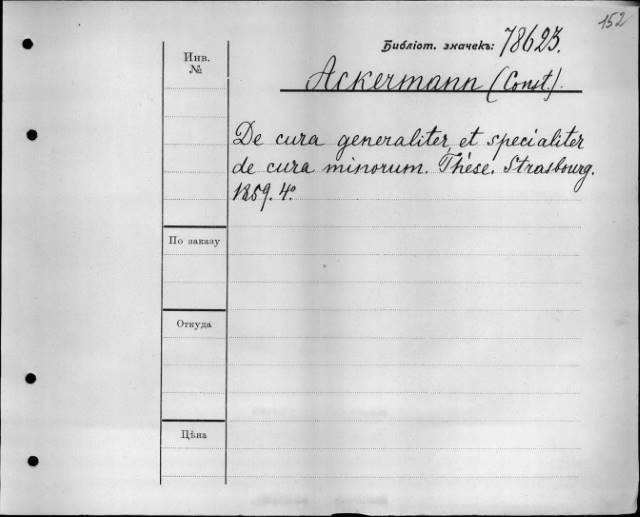 152
Библіот. значекъ: 78623.
Инв.
№
Ackermann (Const.).
De cura generaliter, et specialiter
de cura minorum. Thèse. Strasbourg.
1859. 4°
По заказу
Откуда
Цѣна